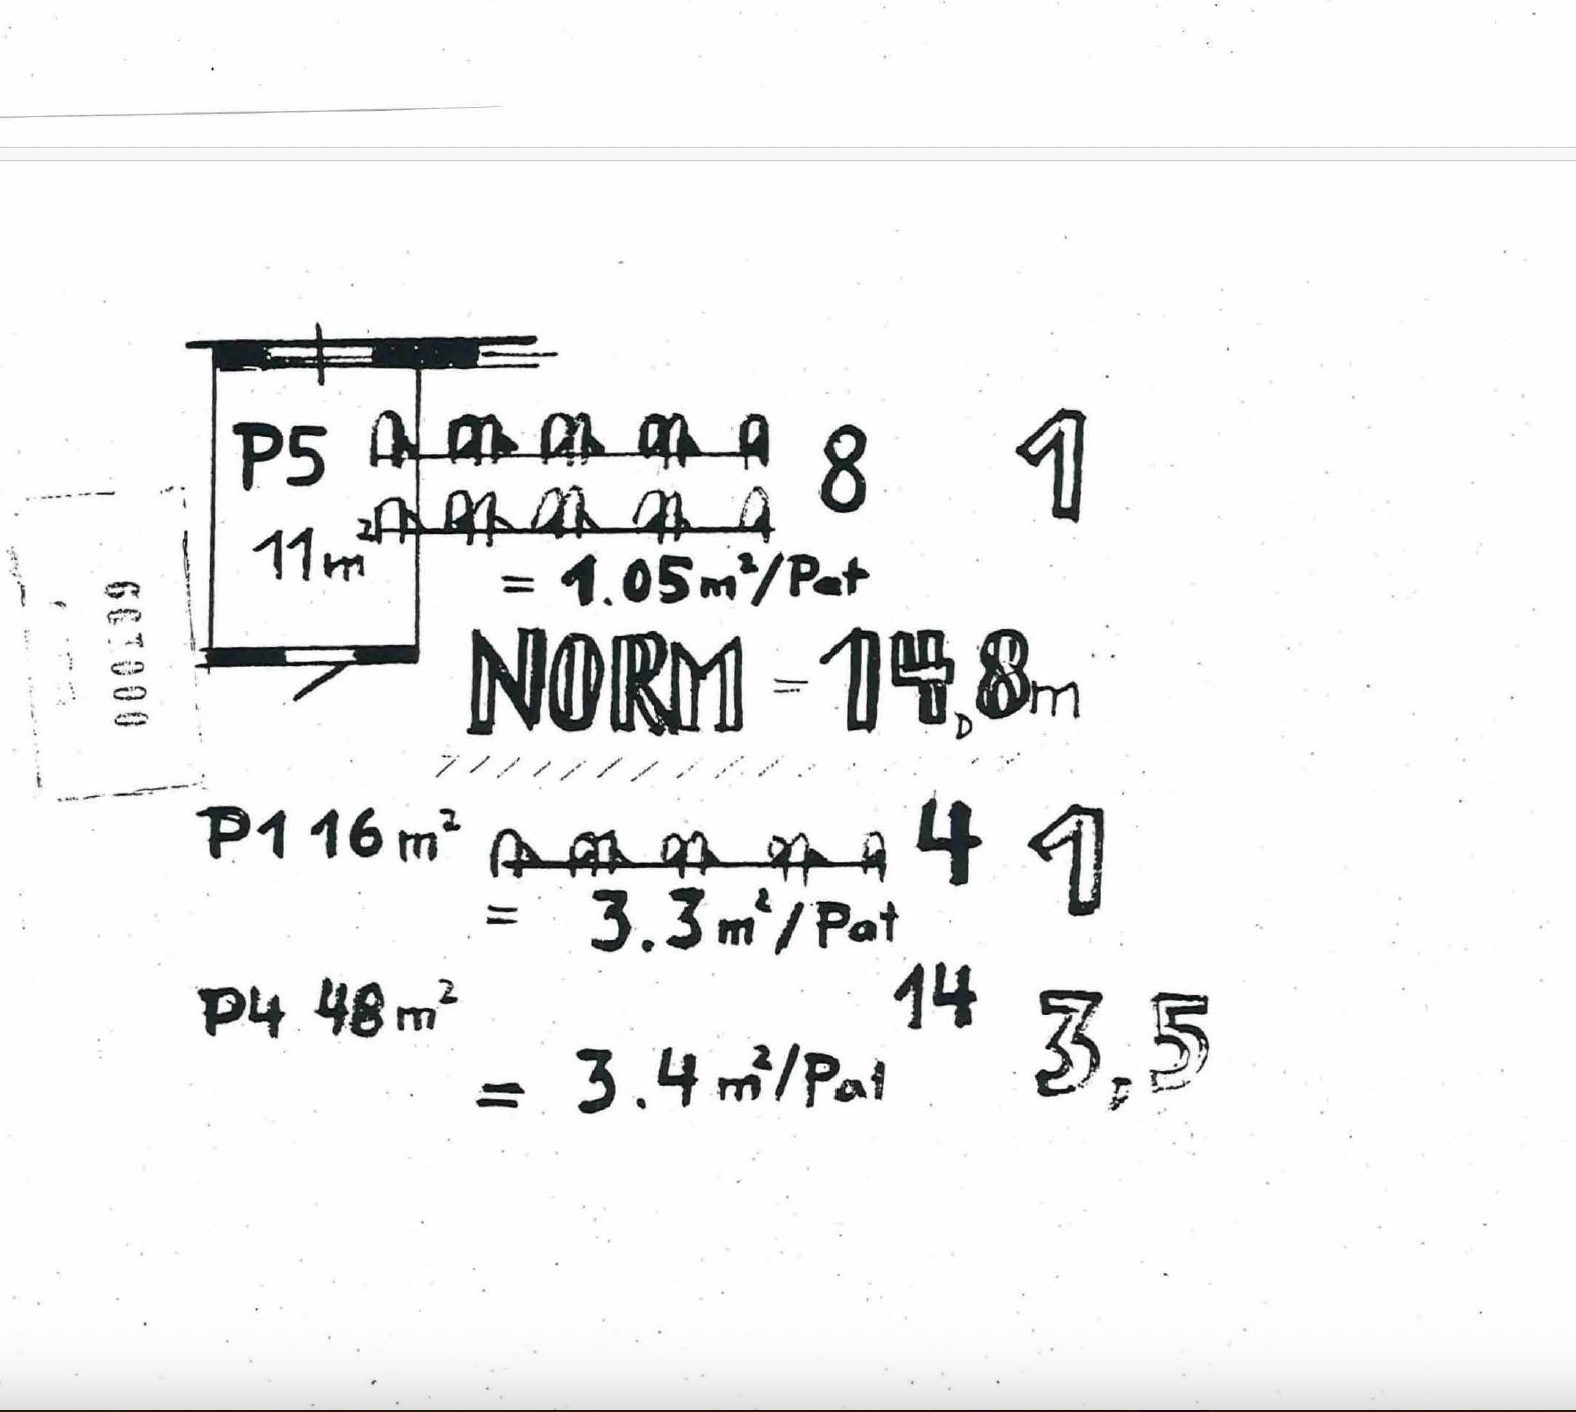 P5 8 1
11m²
= 1.05m²/Pat
NORM = 14,8m
P1 16m² 4 1
= 3.3m²/Pat
P4 48m² 14 3,5
= 3.4m²/Pat